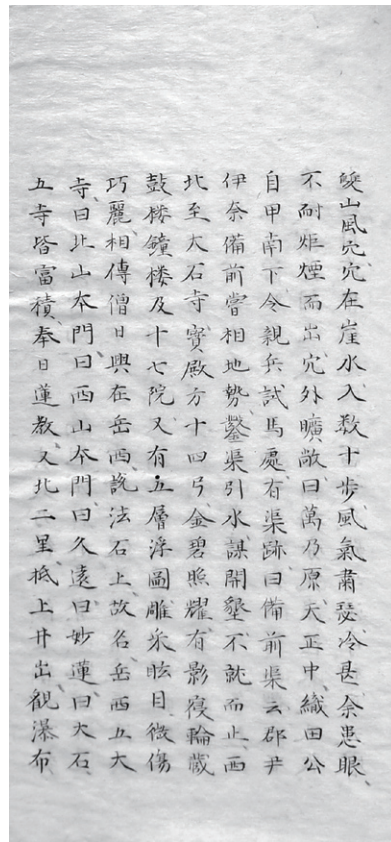 峻山風穴穴在崖水入数十歩風氣肅瑟冷甚余患眼
不耐炬煙而出穴外曠敞曰萬乃原天正中織田公
自甲南下令親兵試馬處有渠跡曰備前渠云郡尹
伊奈備前嘗相地勢鑿渠引水謀開墾不就而止西
北至大石寺寶殿方十四弓金碧照耀有影寝輪蔵
鼓楼鐘楼及十七院又有五層浮圖雕采眩目微傷
巧麗相傳僧日興在岳西説法石上故名岳西五大
寺曰北山本門曰西山本門曰久遠曰妙蓮曰大石
五寺皆富積奉日蓮教又北二里抵上井出観瀑布